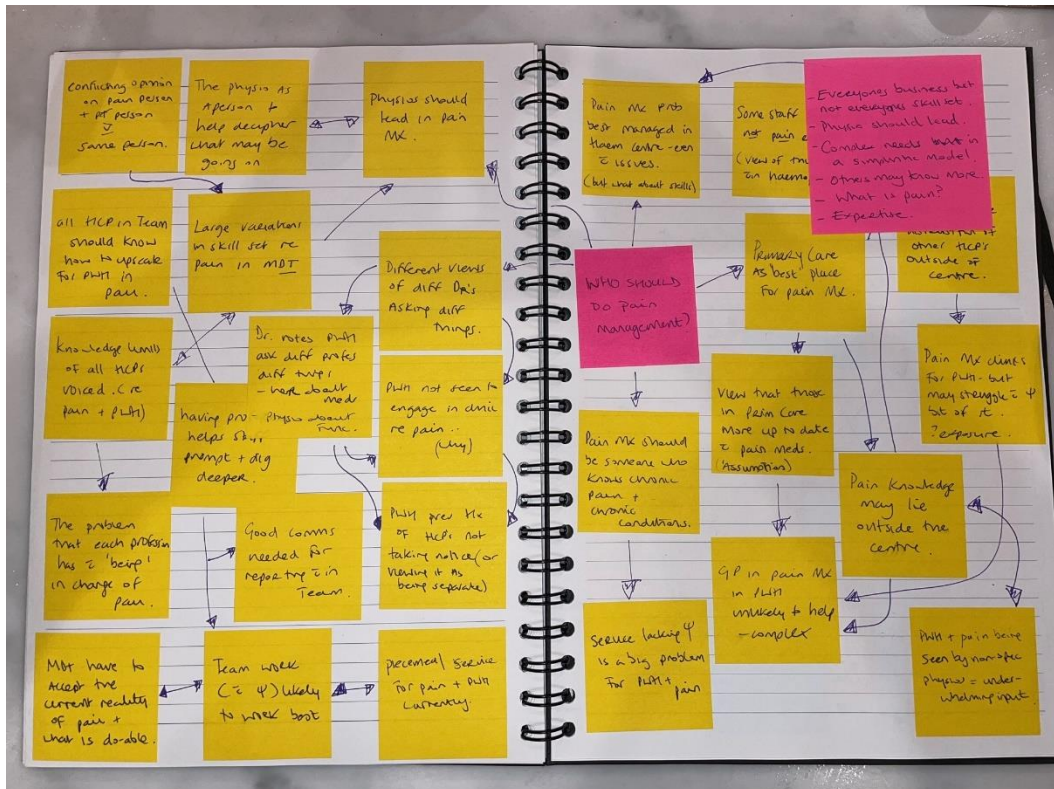 conflicting opinion
on pain person
+ PT person
same person.
The physio As
A person to
help decipher
what may be
going on
Physios should
lead in pain
Mx.
all HCP in Team
should know
how to upscale
for PWH in
pain.
Large variations
in skill set re
pain in MDT
Different views
of diff DRs
Asking diff
things.
Knowledge limits
of all HCPs
voiced. (re
pain + PWH)
Dr. notes PWH
ask diff profes
diff things
meds
- physio about
func.
having pro
helps
prompt + dig
deeper.
PWH not seen to
engage in clinic
re pain..
(why)
The problem
that each profession
has c̄ 'being'
in charge of
pain.
Good comms
needed for
reporting c̄ in
Team.
PWH prev Hx
of HCPs not
taking notice (or
viewing it as
being separate)
MDT have to
Accept the
current reality
of pain +
what is do-able.
Team work
(c̄ Ψ) likely
to work best
piecemeal service
for pain + PWH
currently.
Pain Mx prob
best managed in
Haem centre - even
c̄ issues.
(but what about skills)
Some staff
not pain
(view of
c̄in haemo
- Everyones business but
not everyones skill set.
- Physio should lead.
- Complex needs
a simplistic model.
- Others may know more.
- What is pain?
- Expertise.
other HCPs
outside of
centre.
WHO SHOULD
DO pain
management?
Primary Care
As best place
For pain Mx.
Pain Mx clinics
For PWH - but
may struggle c̄ Ψ
bit of it.
? exposure.
Pain Mx should
be someone who
knows chronic
pain +
chronic
conditions.
View that those
in Prim Care
More up to date
c̄ pain meds.
(Assumption)
Pain knowledge
may lie
outside the
centre.
Service lacking Ψ
is a big problem
for PWH +
pain
GP in pain Mx
in PWH
unlikely to help
- complex
PWH + pain being
seen by non-spec
physios = under-
whelming input